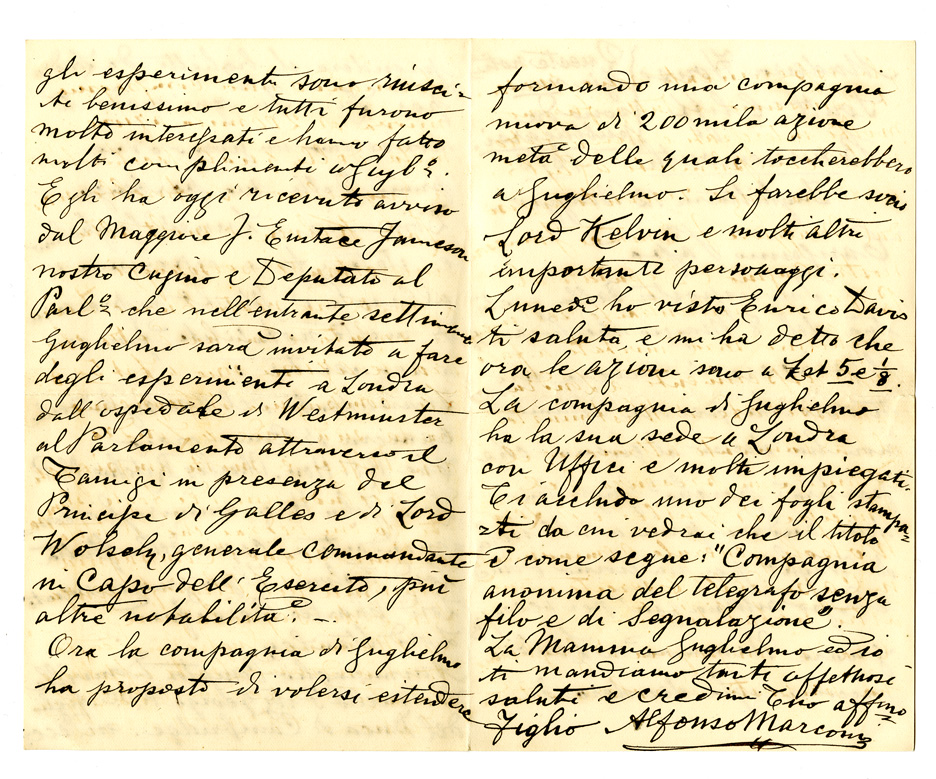 gli esperimenti sono riusci-
ti benissimo e tutti furono
molto interessati e hanno fatto
molti complimenti a Gugl.º
Egli ha oggi ricevuto avviso
dal Maggiore J. Eustace Jameson
nostro Cugino e Deputato al
Parl.º che nell'entrante settimana
Guglielmo sarà invitato a fare
degli esperimenti a Londra
dall'ospedale di Westminster
al Parlamento attraverso il
Tamigi in presenza del
Principe di Galles e di Lord
Wolsely, generale commandante
in Capo dell'Esercito, più
altre notabilità. –
Ora la compagnia di Guglielmo
ha proposto di volersi estendere
formando una compagnia
nuova di 200 mila azione
metà delle quali toccherebbero
a Guglielmo. Si farebbe socio
Lord Kelvin e molti altri
importanti personaggi.
Lunedì ho visto Enrico Davis
ti saluta, e mi ha detto che
ora le azioni sono a 5 e 1/8.
La compagnia di Guglielmo
ha la sua sede a Londra
con Uffici e molti impiegati.
Ti accludo uno dei fogli stampa-
ti da cui vedrai che il titolo
è come segue: "Compagnia
anonima del telegrafo senza
filo e di Segnalazione".
La Mamma Guglielmo ed io
ti mandiamo tanti affettuosi
saluti e credimi Tuo affmo
Figlio Alfonso Marconi